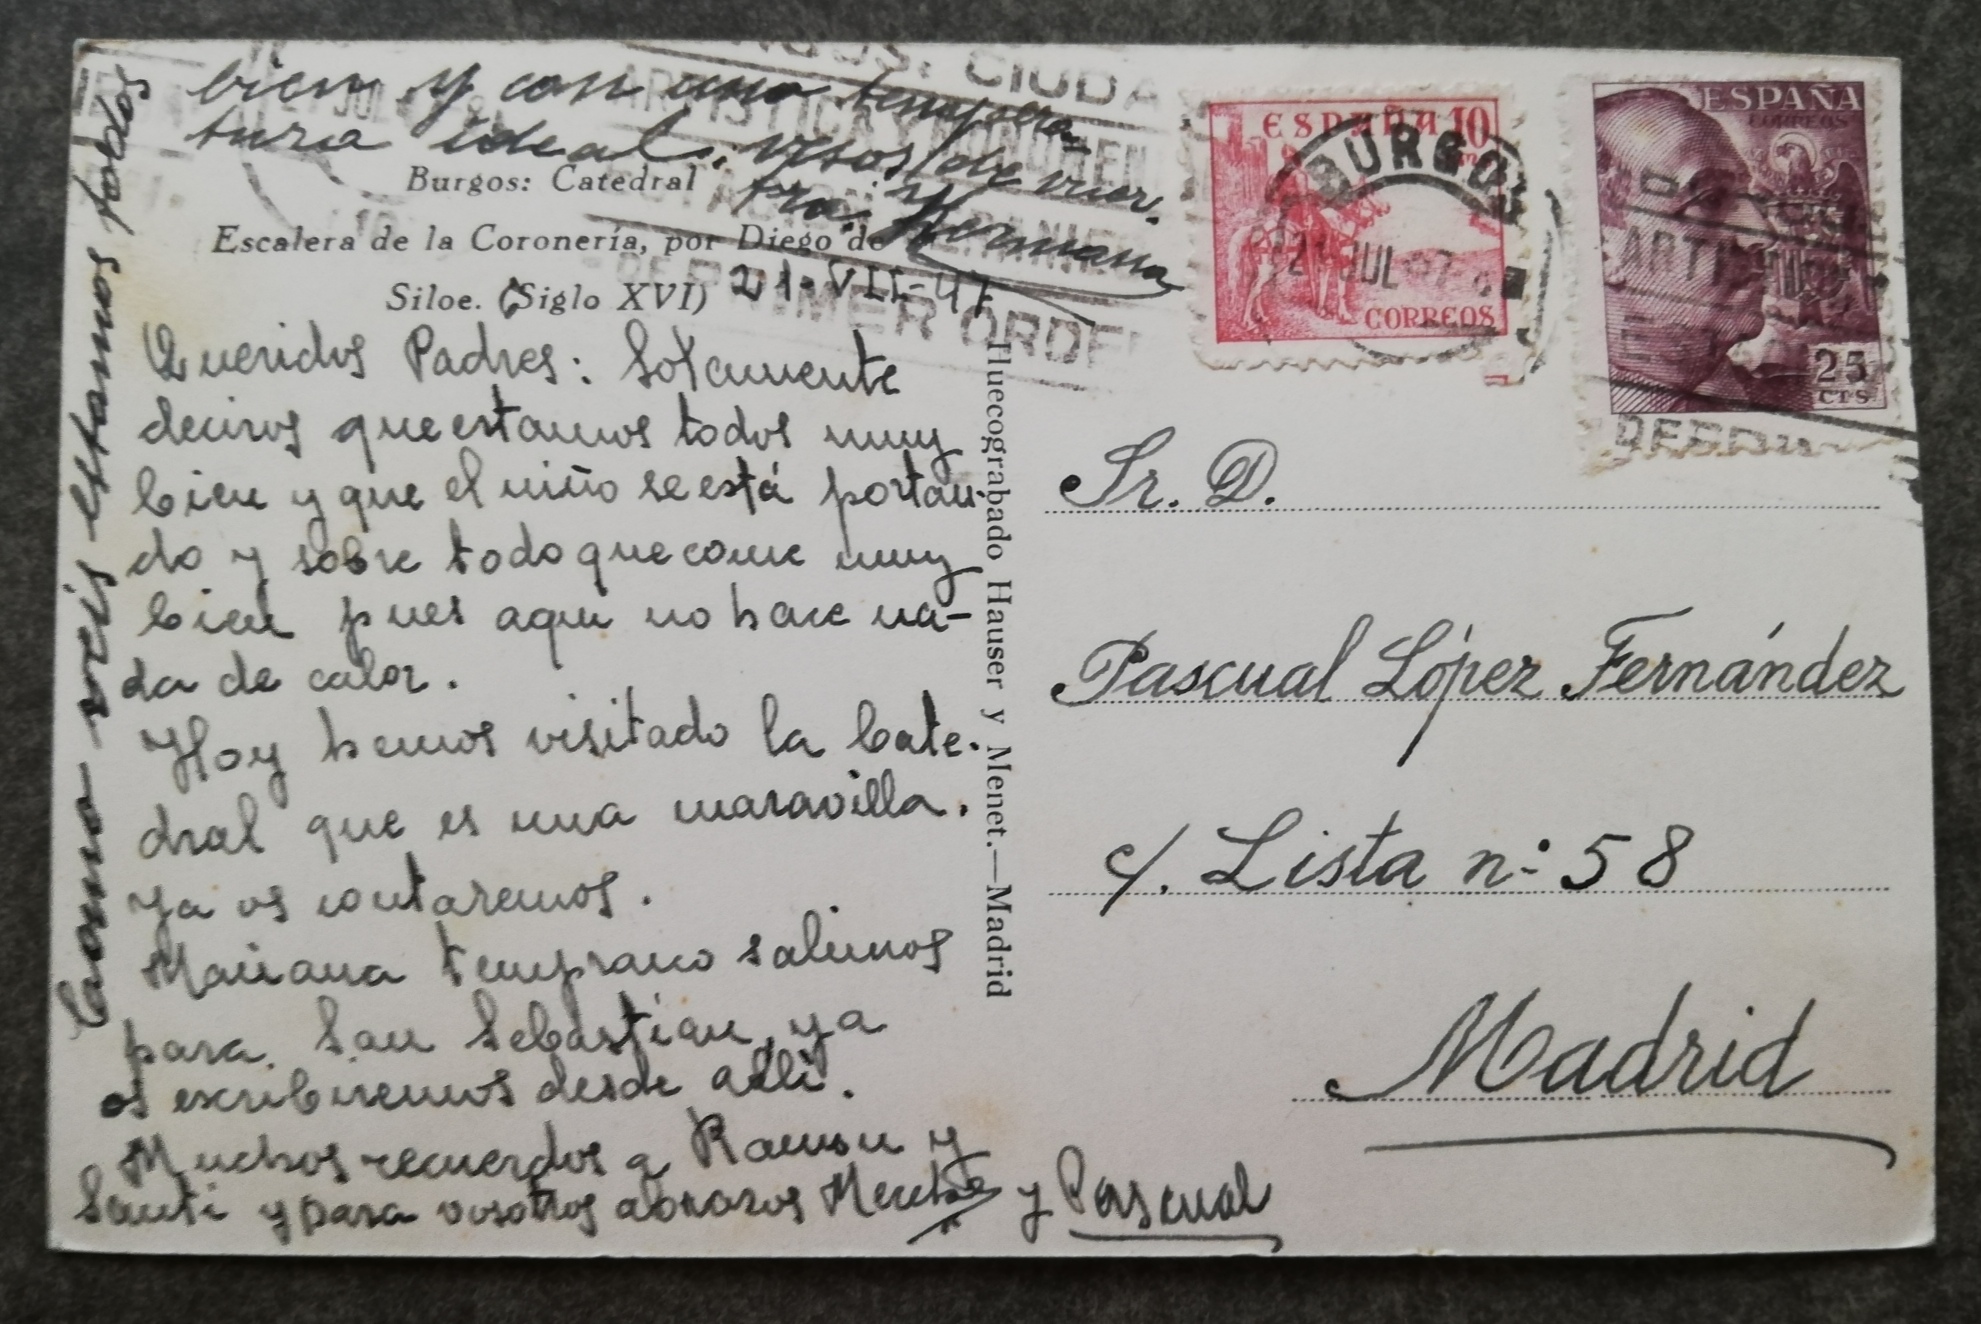 Burgos: Catedral
Escalera de la Coronería, por Diego de
Siloe. (Siglo XVI)
21-VII-47
Queridos Padres: Solamente
deciros que estamos todos muy
bien y que el niño se está portan-
do y sobre todo que come muy
bien pues aqui no hace na-
da de calor.
Hoy hemos visitado la Cate-
dral que es una maravilla.
Ya os contaremos.
Mañana temprano salimos
para San Sebastian, ya
os escribiremos desde alli.
Muchos recuerdos a Ramon y
Santi y para vosotros abrazos
y Pascual
Como veis estamos todos
bien y con una tempera-
tura ideal. Vesos de vues-
tra
hermana
Huecograbado Hauser y Menet.—Madrid
ESPAÑA 10
CORREOS
BURGOS
21 JUL 47
ESPAÑA
CORREOS
25
CTS
CIUDA
ARTISTICA Y MONUMEN
DE PRIMER ORDEN
Sr. D.
Pascual López Fernández
c/. Lista nº: 58
Madrid